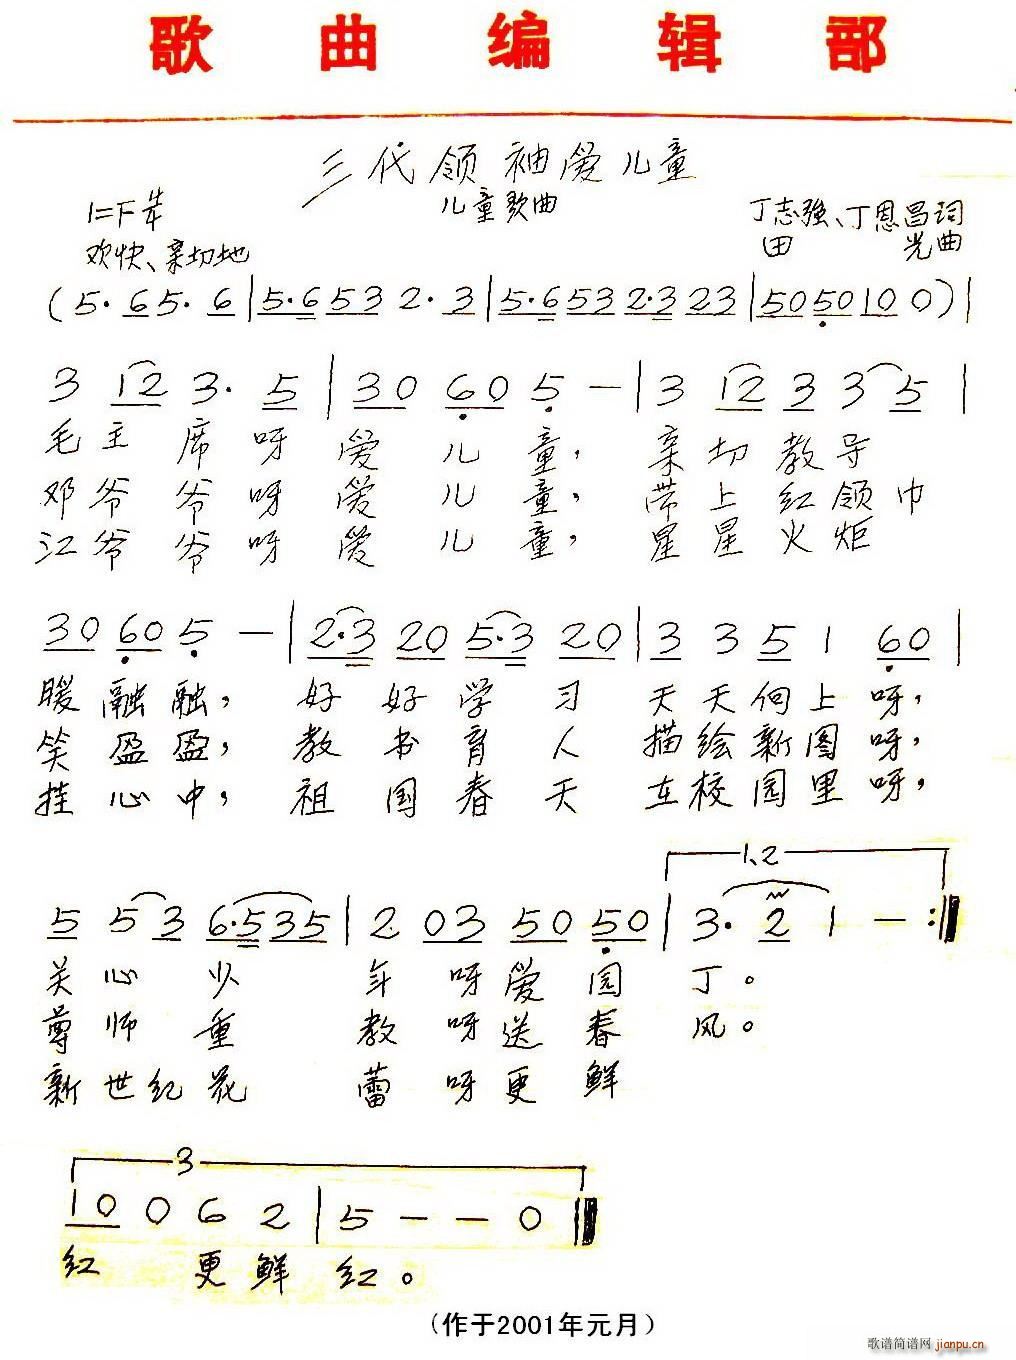 歌曲编辑部
三代领袖爱儿童
儿童歌曲
1=F 4/4
丁志强、丁恩昌词
欢快、亲切地
田 光曲
(5·65·6|5·6532·3|5·6532·323|5050100)|
3 12 3· 5|30 60 5 —|3 12 3 3 5|
毛主席呀爱儿童,亲切教导
邓爷爷呀爱儿童,带上红领巾
江爷爷呀爱儿童,星星火炬
30 60 5 —|2·3 20 5·3 20|3 3 5 1 60|
暖融融,好好学习天天向上呀,
笑盈盈,教书育人描绘新图呀,
挂心中,祖国春天在校园里呀,
1、2
5 5 3 6·535|2 03 50 50|3· 2 1 —:‖
关心少年呀爱园丁。
尊师重教呀送春风。
新世纪花蕾呀更鲜
3
10 0 6 2|5 — — 0‖
红 更鲜红。
(作于2001年元月)
歌谱简谱网 jianpu.cn